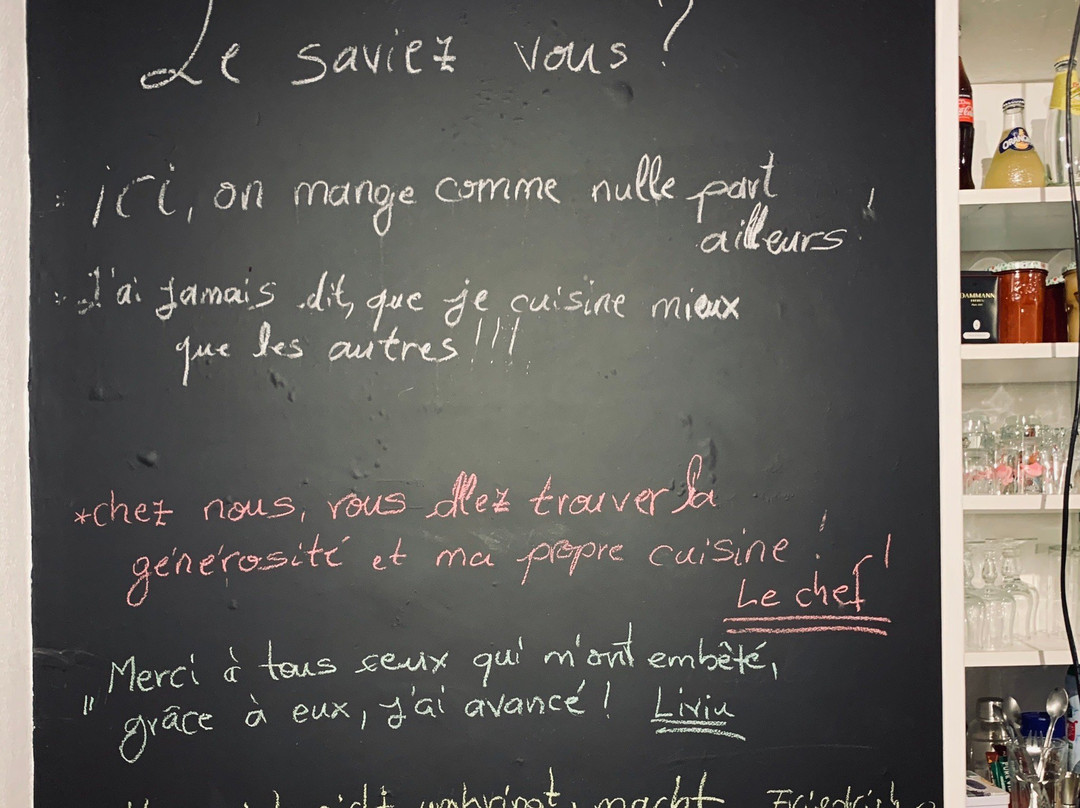 Le saviez vous ?
ici, on mange comme nulle part
ailleurs !
J'ai jamais dit, que je cuisine mieux
que les autres !!!
*chez nous, vous allez trouver la
générosité et ma propre cuisine !
Le chef !
Merci à tous ceux qui m'ont embêté,
" grâce à eux, j'ai avancé ! Liviu
umbringt, macht Friedrich
ORANGINA
DAMMANN